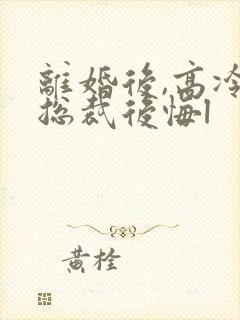 離婚後,高冷
總裁後悔1
黃栓